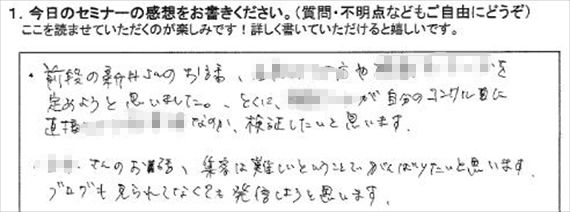 1. 今日のセミナーの感想をお書きください。(質問・不明点などもご自由にどうぞ)
ここを読ませていただくのが楽しみです！詳しく書いていただけると嬉しいです。
・前段の新井さんのお話、 や を
定めようと思いました。とくに、 が自分のコンサル に
直接 なのか、検証したいと思います。
・ さんのお話、集客は難しいということでがんばりたいと思います。
ブログも見られてなくても発信しようと思います。